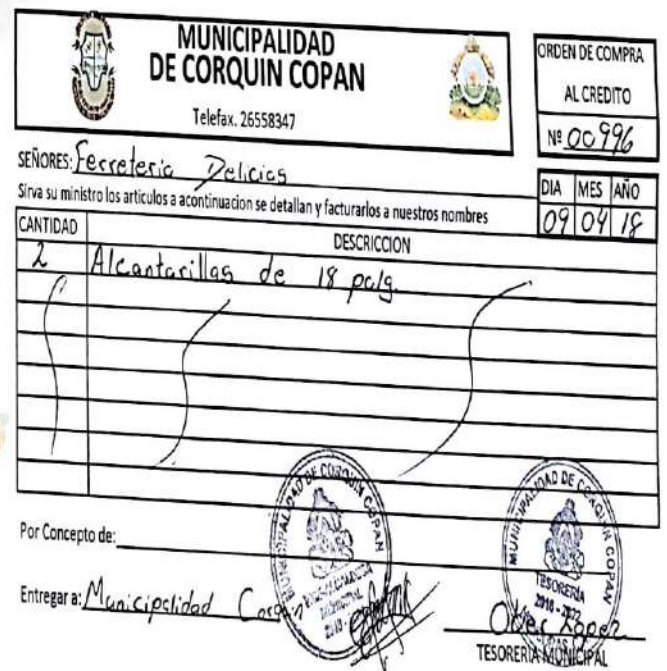 MUNICIPALIDAD
DE CORQUIN COPAN
Telefax. 26558347
ORDEN DE COMPRA
AL CREDITO
Nº 00996
SEÑORES: Ferreteria Delicias
Sirva su ministro los articulos a acontinuacion se detallan y facturarlos a nuestros nombres
DIA MES AÑO
09 04 18
CANTIDAD DESCRICCION
2 Alcantarillas de 18 pulg.
Por Concepto de:
Entregar a: Municipalidad Corquin
MUNICIPALIDAD DE CORQUIN COPAN
MUNICIPALIDAD DE CORQUIN COPAN
TESORERIA
2018 - 2022
Ober Lopez
TESORERIA MUNICIPAL